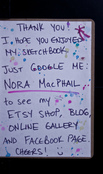 THANK YOU!
I HOPE YOU ENJOYED
MY SKETCHBOOK.
JUST GOOGLE ME:
NORA MACPHAIL,
to see my
ETSY SHOP, BLOG,
ONLINE GALLERY
AND FACEBOOK PAGE.
CHEERS!